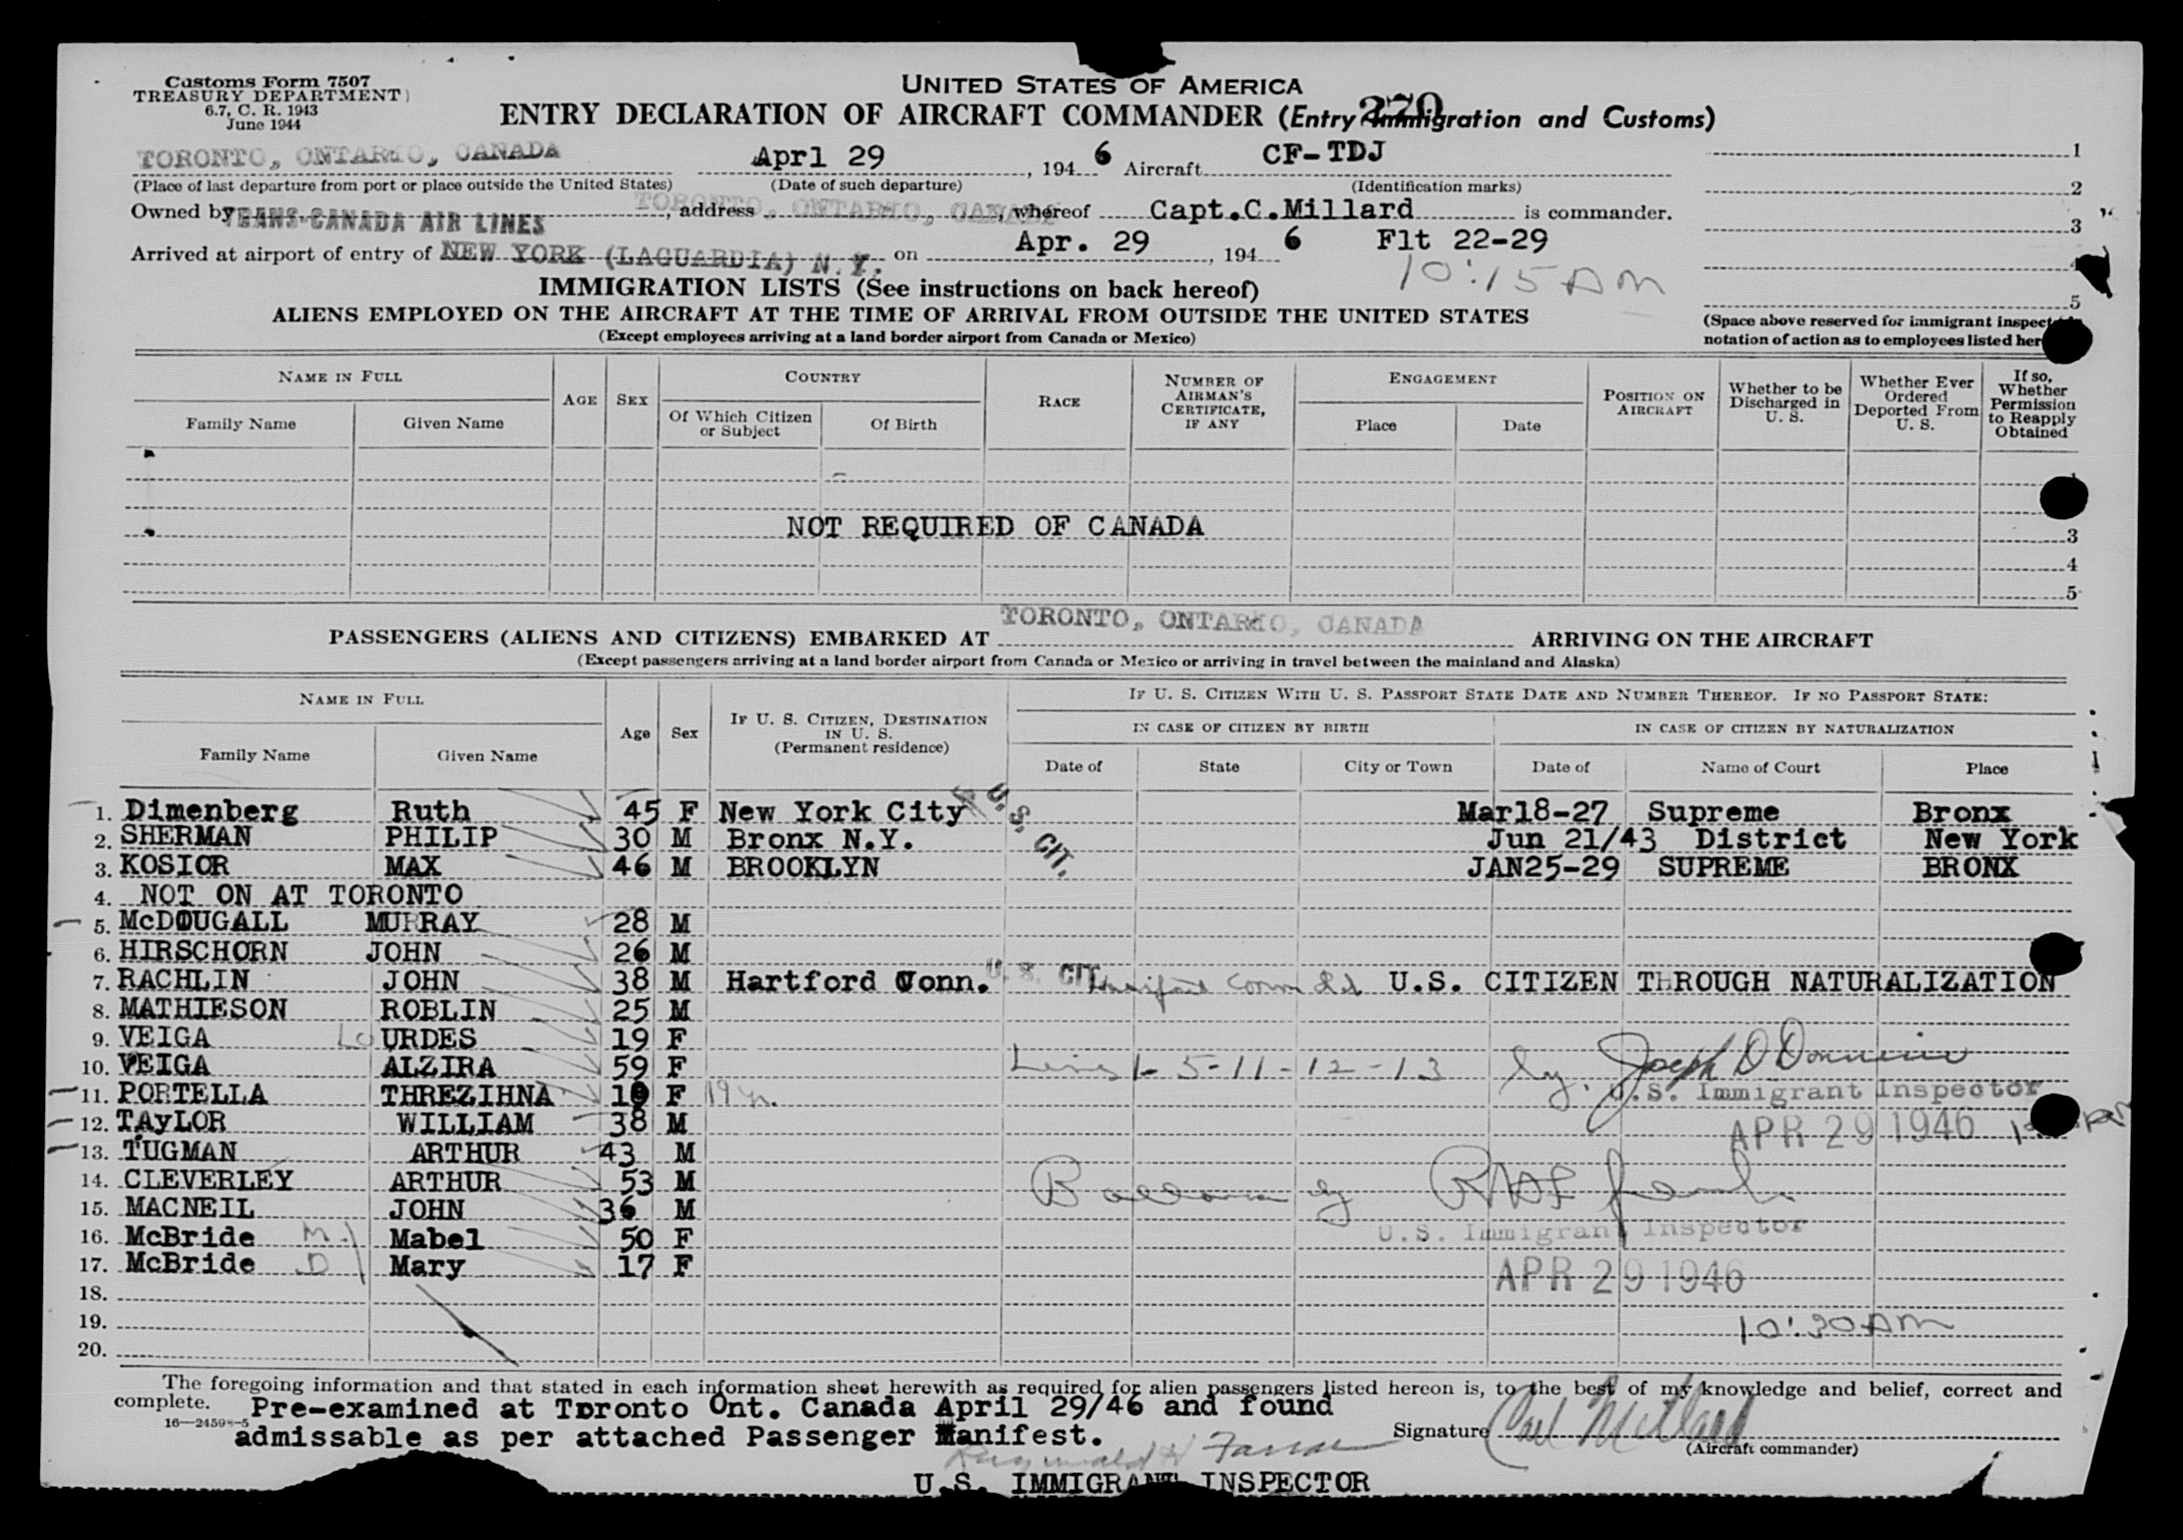 Customs Form 7507
TREASURY DEPARTMENT
6.7, C. R. 1943
June 1944
UNITED STATES OF AMERICA
270
ENTRY DECLARATION OF AIRCRAFT COMMANDER (Entry Immigration and Customs)
TORONTO, ONTARIO, CANADA Aprl 29, 1946 Aircraft CF-TDJ 1
(Place of last departure from port or place outside the United States) (Date of such departure) (Identification marks) 2
Owned by TRANS-CANADA AIR LINES TORONTO, address ONTARIO, CANADA, whereof Capt.C.Millard is commander. 3
Arrived at airport of entry of NEW YORK (LAGUARDIA) N.Y. on Apr. 29, 1946 Flt 22-29 4
10:15 AM
IMMIGRATION LISTS (See instructions on back hereof) 5
ALIENS EMPLOYED ON THE AIRCRAFT AT THE TIME OF ARRIVAL FROM OUTSIDE THE UNITED STATES
(Space above reserved for immigrant inspect
(Except employees arriving at a land border airport from Canada or Mexico)
notation of action as to employees listed her
NAME IN FULL AGE SEX COUNTRY RACE NUMBER OF AIRMAN'S CERTIFICATE, IF ANY ENGAGEMENT POSITION ON AIRCRAFT Whether to be Discharged in U. S. Whether Ever Ordered Deported From U. S. If so, Whether Permission to Reapply Obtained
Family Name Given Name Of Which Citizen or Subject Of Birth Place Date
1
NOT REQUIRED OF CANADA
3
4
5
PASSENGERS (ALIENS AND CITIZENS) EMBARKED AT TORONTO, ONTARIO, CANADA ARRIVING ON THE AIRCRAFT
(Except passengers arriving at a land border airport from Canada or Mexico or arriving in travel between the mainland and Alaska)
NAME IN FULL Age Sex IF U. S. CITIZEN, DESTINATION IN U. S. (Permanent residence) IF U. S. CITIZEN WITH U. S. PASSPORT STATE DATE AND NUMBER THEREOF. IF NO PASSPORT STATE:
IN CASE OF CITIZEN BY BIRTH IN CASE OF CITIZEN BY NATURALIZATION
Family Name Given Name Date of State City or Town Date of Name of Court Place
1. Dimenberg Ruth 45 F New York City U. S. CIT. Mar18-27 Supreme Bronx
2. SHERMAN PHILIP 30 M Bronx N.Y. Jun 21/43 District New York
3. KOSIOR MAX 46 M BROOKLYN JAN25-29 SUPREME BRONX
4. NOT ON AT TORONTO
5. McDOUGALL MURRAY 28 M
6. HIRSCHORN JOHN 26 M
7. RACHLIN JOHN 38 M Hartford Conn. U. S. CIT. U.S. CITIZEN THROUGH NATURALIZATION
8. MATHIESON ROBLIN 25 M
9. VEIGA LoURDES 19 F
10. VEIGA ALZIRA 59 F Lines 1-5-11-12-13 by. Joseph D
11. PORTELLA THREZIHNA 10 F 19 yr. U.S. Immigrant Inspector
12. TAyLOR WILLIAM 38 M APR 29 1946
13. TUGMAN ARTHUR 43 M
14. CLEVERLEY ARTHUR 53 M Balance by
15. MACNEIL JOHN 36 M
16. McBride M. Mabel 50 F U.S. Immigrant Inspector
17. McBride D Mary 17 F APR 29 1946
18.
19. 10:30 AM
20.
The foregoing information and that stated in each information sheet herewith as required for alien passengers listed hereon is, to the best of my knowledge and belief, correct and
complete. Pre-examined at Toronto Ont. Canada April 29/46 and found
16—24598-5 admissable as per attached Passenger Manifest. Signature Carl Millard
(Aircraft commander)
U.S. IMMIGRANT INSPECTOR